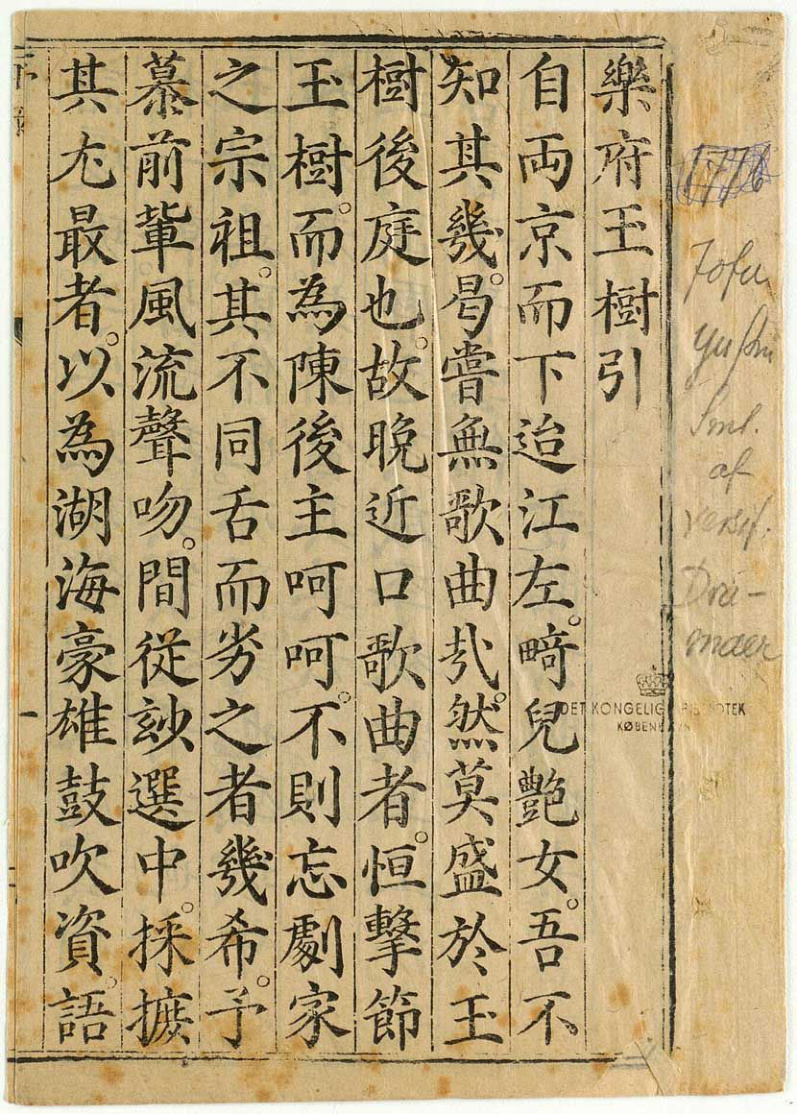 樂府玉樹引
自両京而下迨江左。畸兒艷女。吾不
知其幾。曷嘗無歌曲哉。然莫盛於玉
樹後庭也。故晚近口歌曲者。恒擊節
玉樹。而為陳後主呵呵。不則忘劇家
之宗祖。其不同舌而劣之者幾希。予
慕前輩風流聲吻。間從玅選中。採摭
其尤最者。以為湖海豪雄鼓吹資。語
Sml.
af
versif.
DET KONGELIGE BIBLIOTEK
KØBENHAVN